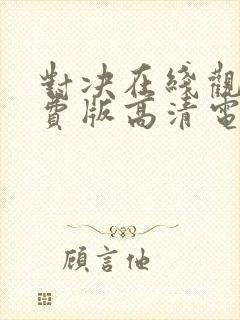 對決在綫觀
費版高清電
顧言他